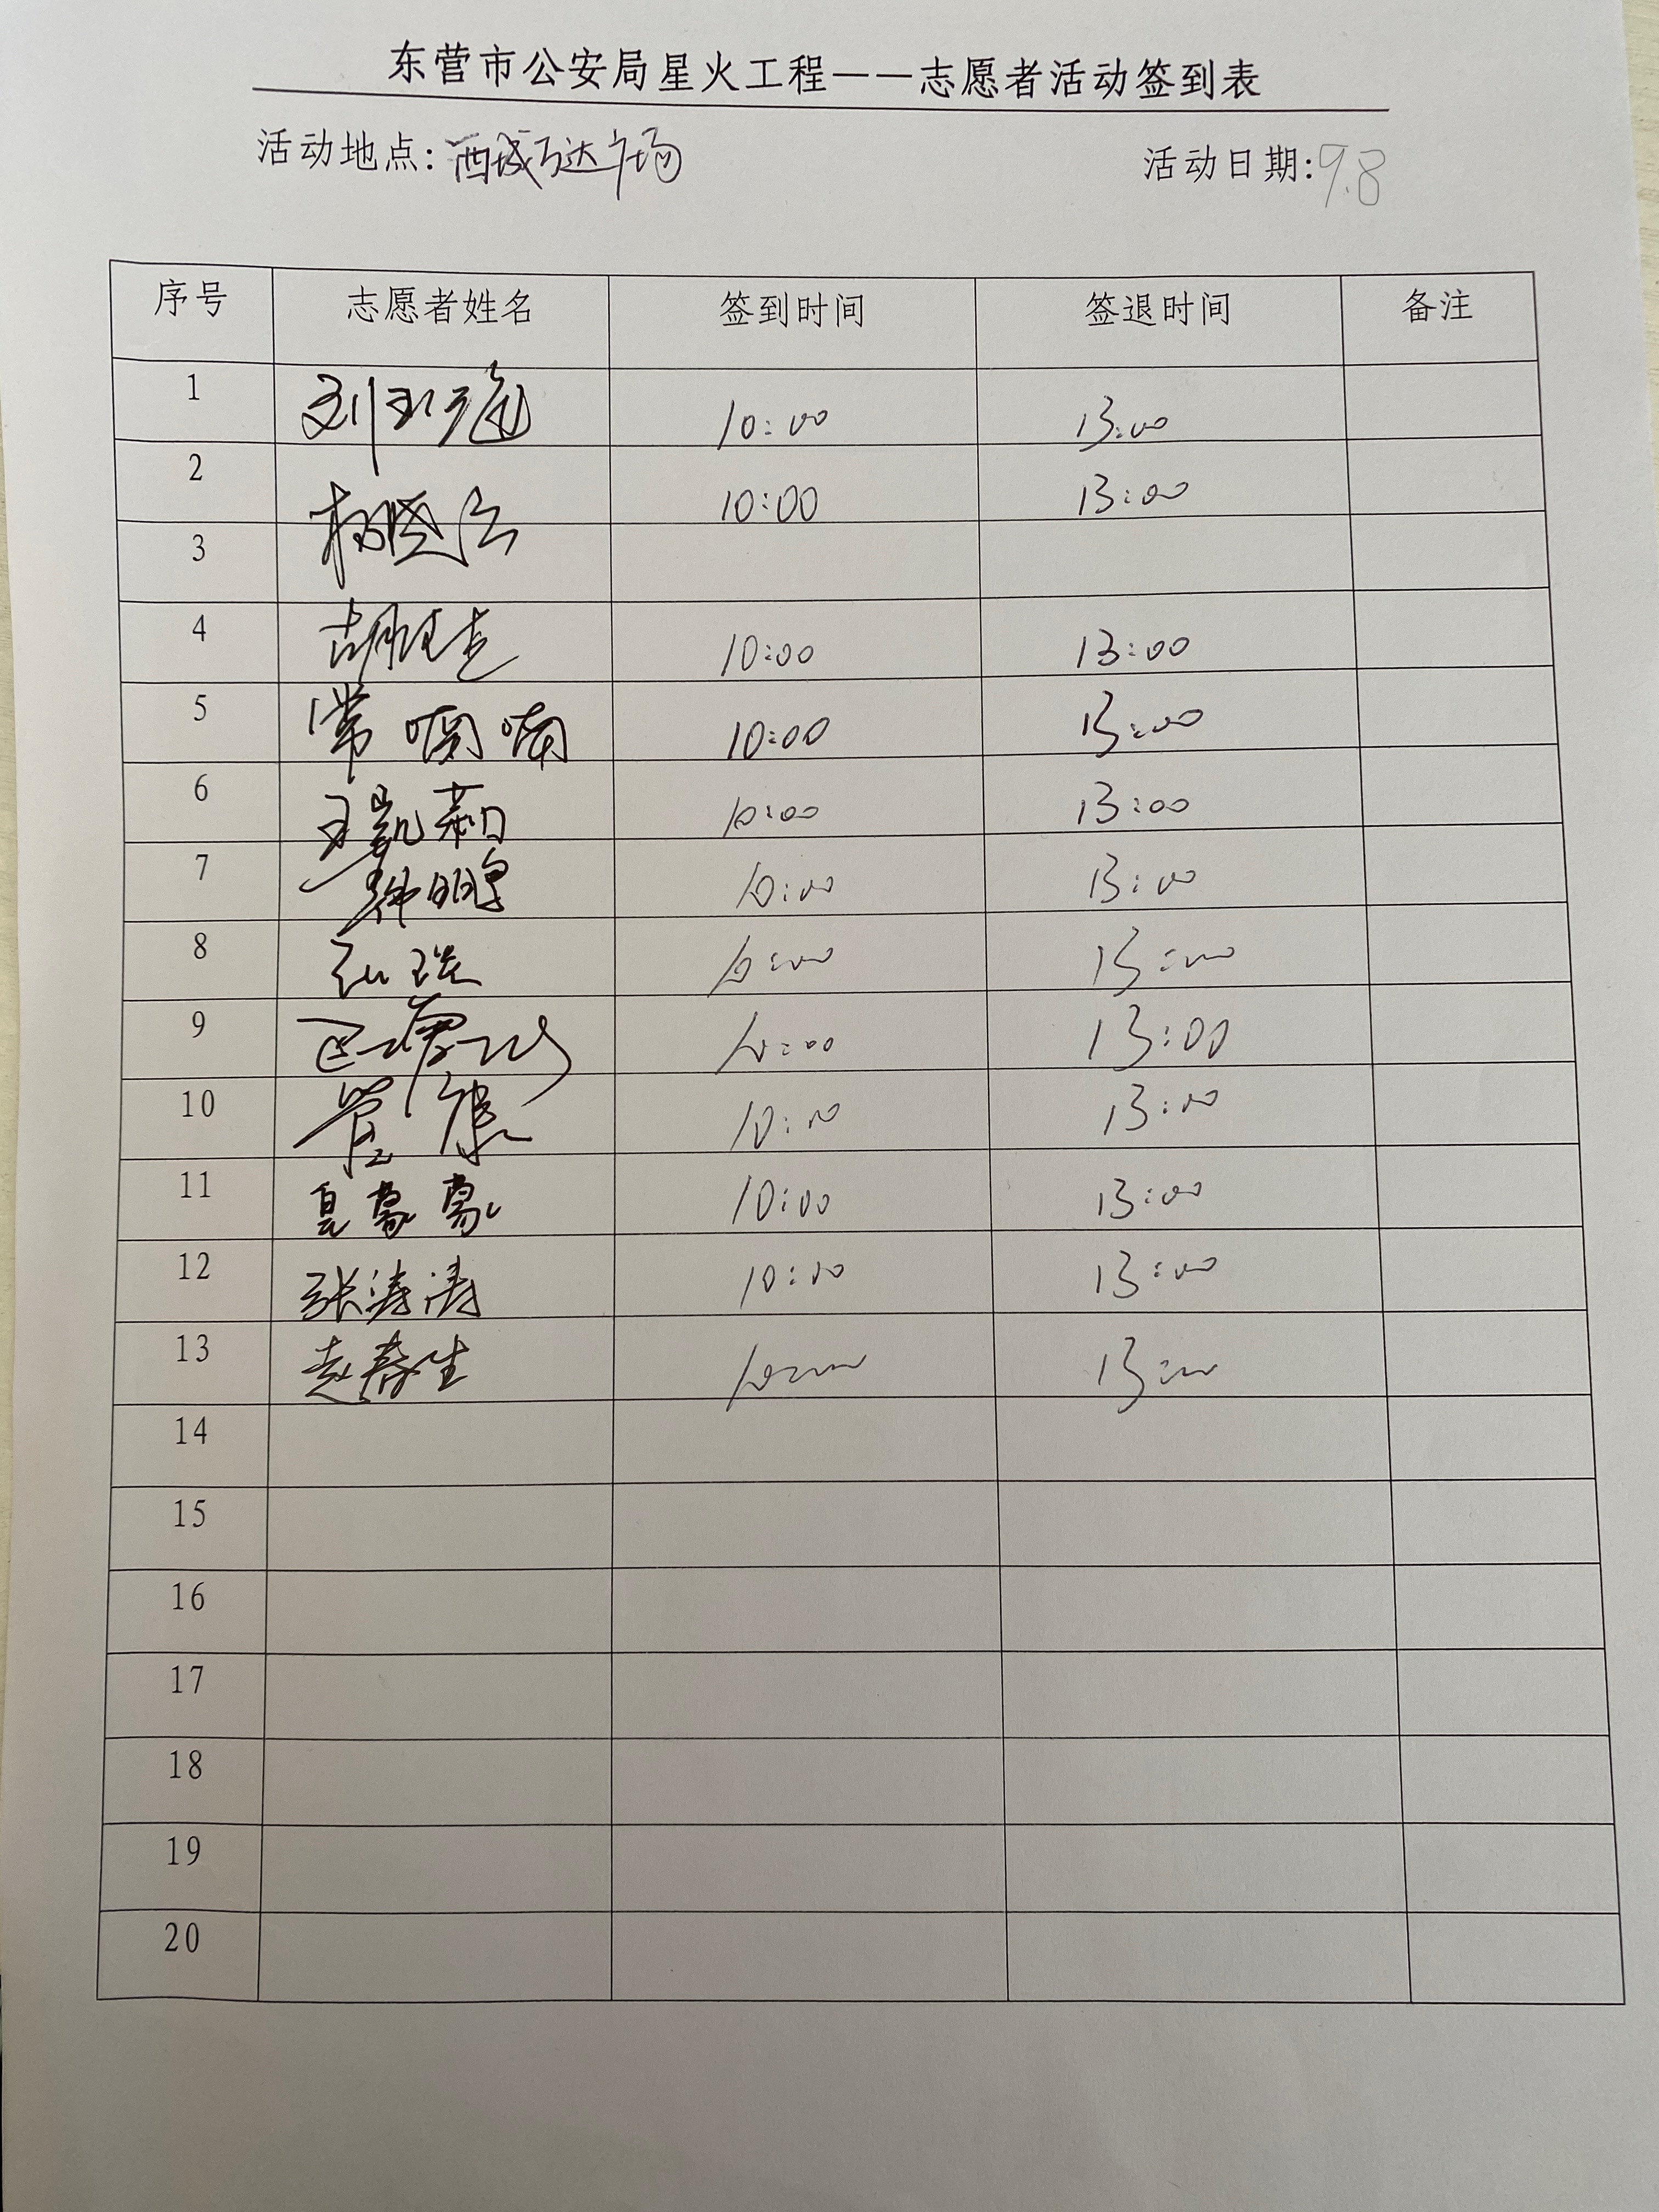 东营市公安局星火工程——志愿者活动签到表
活动地点:西城万达广场 活动日期:9.8
序号 志愿者姓名 签到时间 签退时间 备注
1 刘 10:00 13:00
2 杨晓 10:00 13:00
3
4 胡 10:00 13:00
5 常 10:00 13:00
6 王凯莉 10:00 13:00
7 韩明 10:00 13:00
8 10:00 13:00
9 10:00 13:00
10 管健 10:00 13:00
11 夏蒙蒙 10:00 13:00
12 张涛涛 10:00 13:00
13 赵春生 10:00 13:00
14
15
16
17
18
19
20